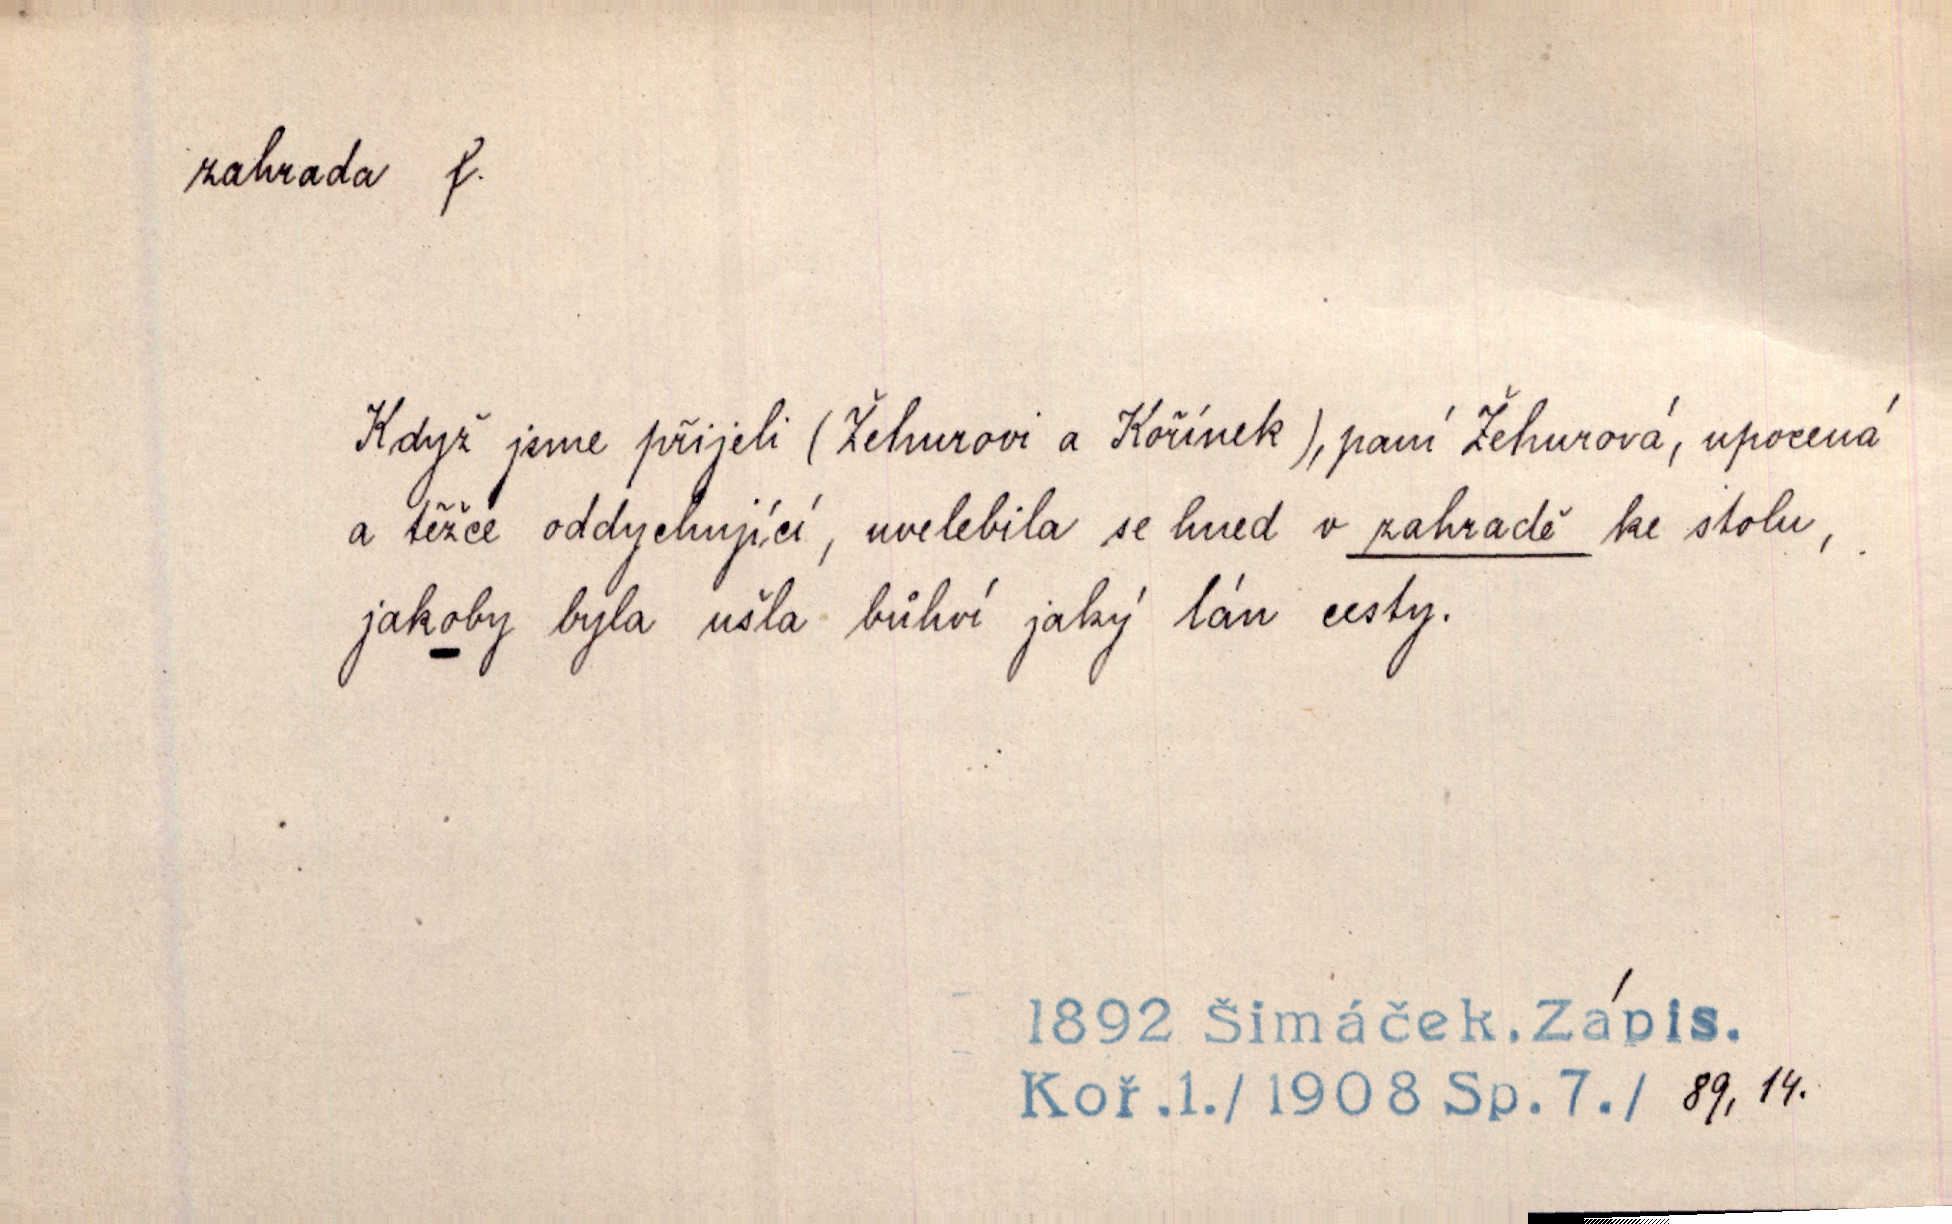 zahrada f.
Když jsme přijeli (Žehurovi a Kořínek), paní Žehurová, upocená
a těžce oddychující, uvelebila se hned v zahradě ke stolu,
jakoby byla ušla bůhví jaký lán cesty.
1892 Šimáček. Zápis.
Koř. 1./1908 Sp. 7./ 89, 14.